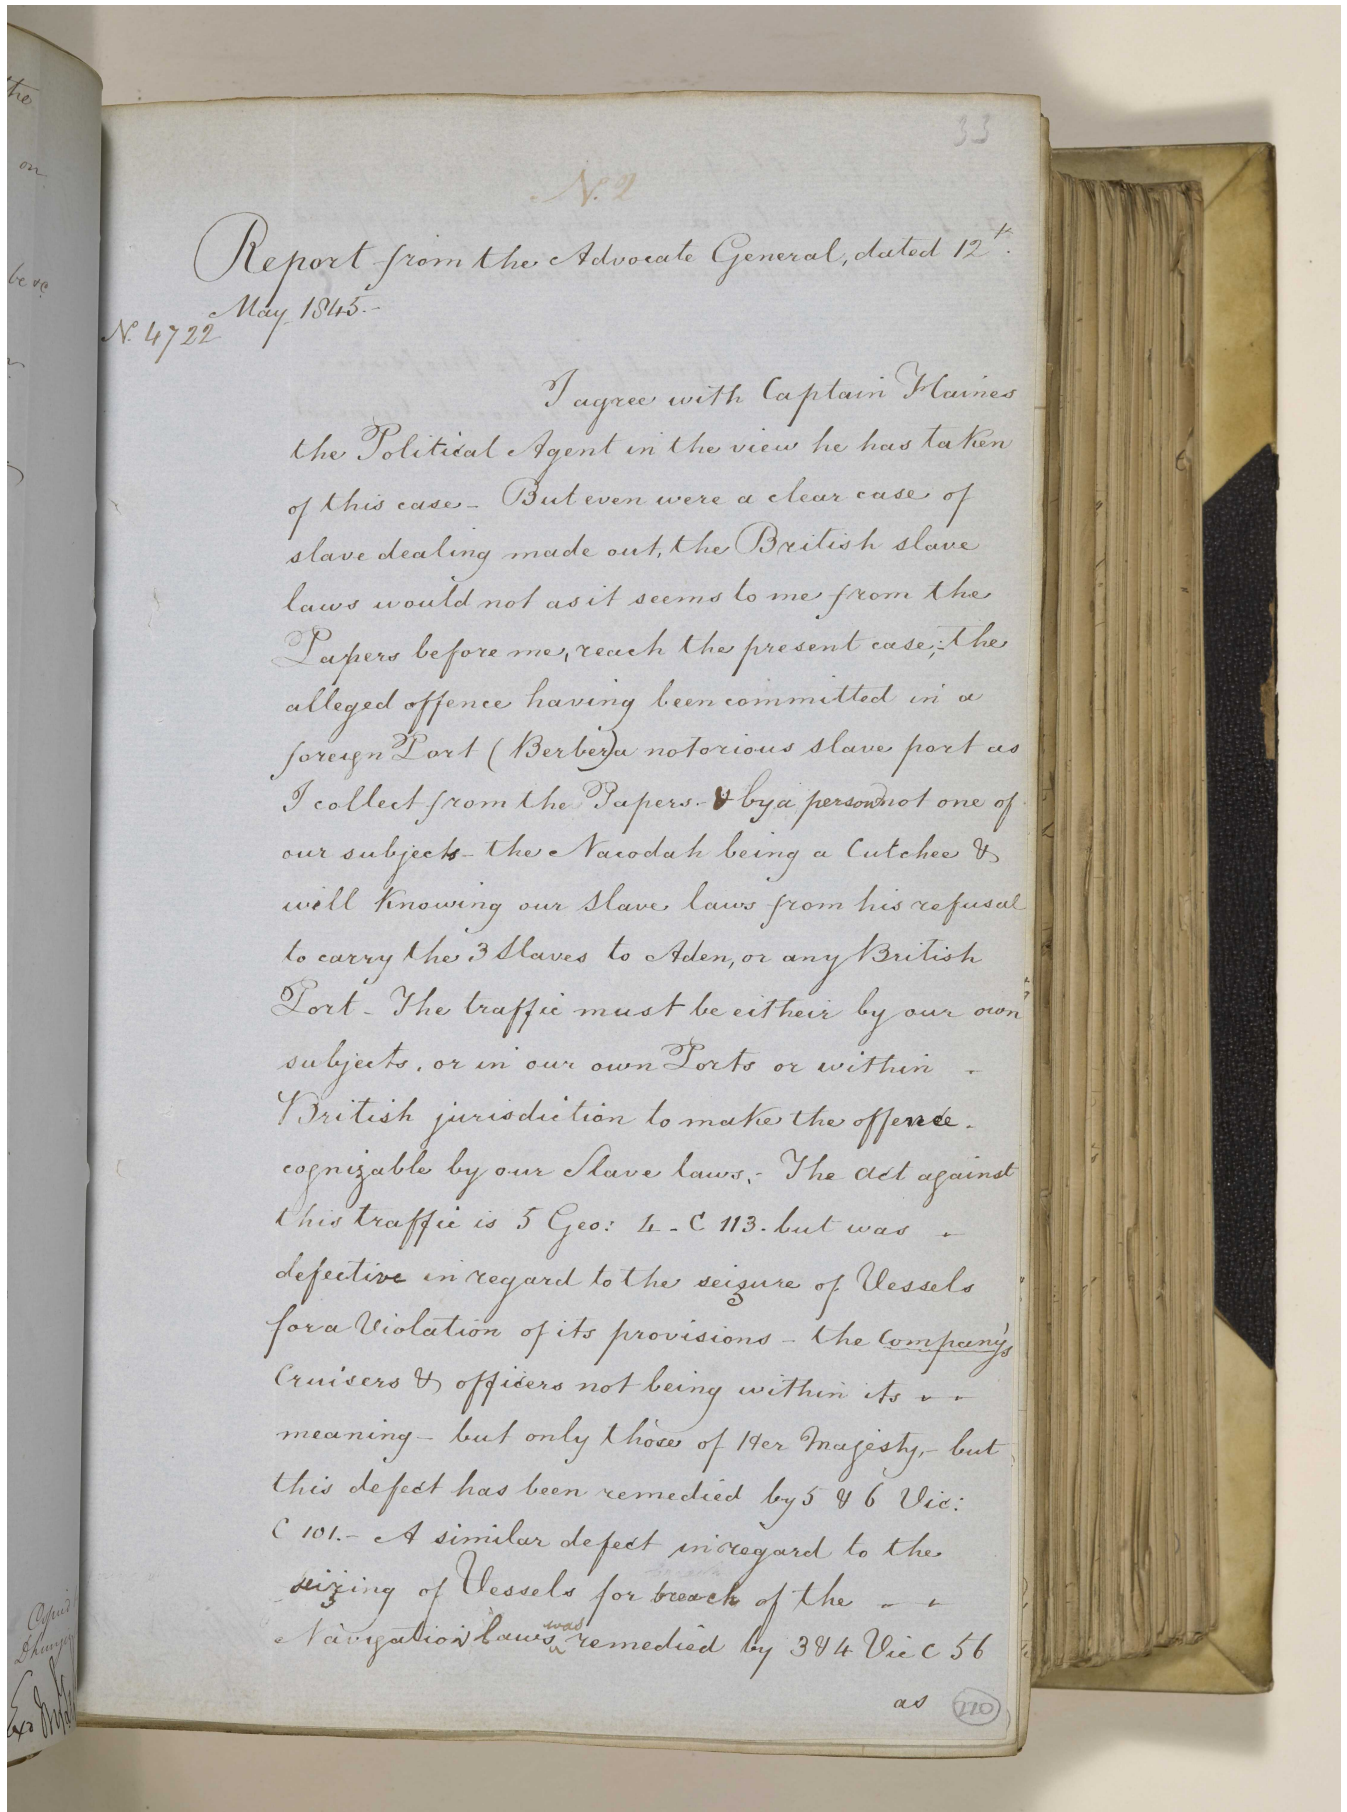 33
N. 2
Report from the Advocate General, dated 12th.
May 1845.-
N. 4722
I agree with Captain Haines
the Political Agent in the view he has taken
of this case - But even were a clear case of
slave dealing made out, the British slave
laws would not as it seems to me from the
Papers before me, reach the present case;- the
alleged offence having been committed in a
foreign Port (Berber) a notorious slave port as
I collect from the Papers.- & by a person not one of
our subjects - the Nacodah being a Cutchee &
well knowing our slave laws from his refusal
to carry the 3 Slaves to Aden, or any British
Port - The traffic must be eitheir by our own
subjects, or in our own Ports or within -
British jurisdiction to make the offence -
cognizable by our Slave laws.- The act against
this traffic is 5 Geo: 4 - C 113. but was -
defective in regard to the seizure of Vessels
for a Violation of its provisions - the Company's
Cruisers & officers not being within its - -
meaning - but only those of Her Majesty,- but
this defect has been remedied by 5 & 6 Vic:
C 101.- A similar defect in regard to the
seizing of Vessels for breach of the - -
Navigation laws was remedied by 3 & 4 Vic C 56
as
110
the
on
be &c